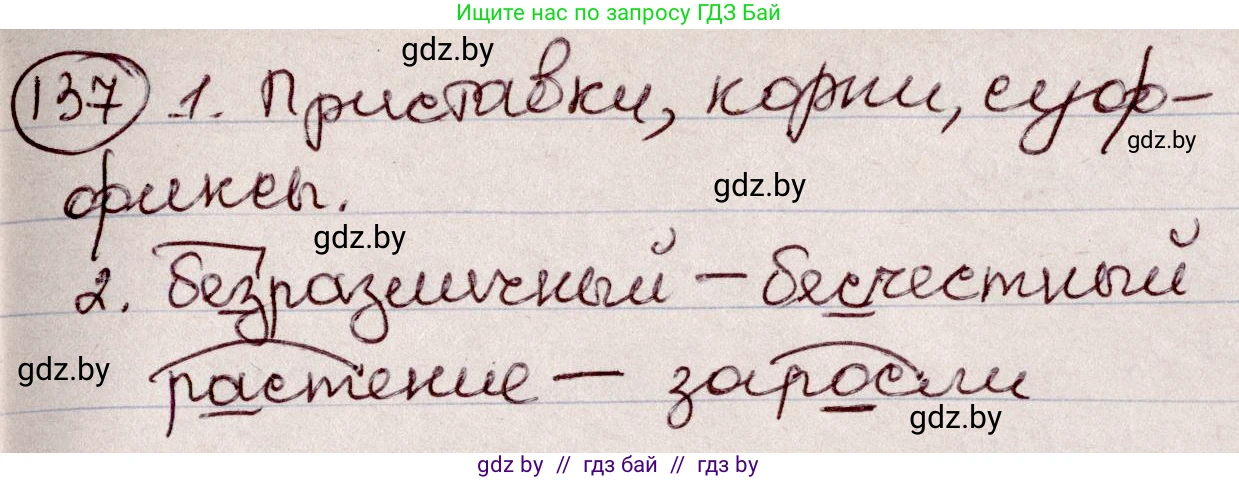 Ищите нас по запросу ГДЗ Бай
gdz.by
137 1. Приставки, корни, суф-
gdz.by
фиксы.
gdz.by
gdz.by
2. безразличный – бесчестный
gdz.by
растение – заросли
gdz.by
gdz by // гдз бай // гдз by